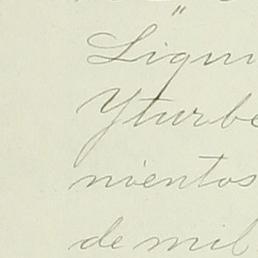 Liqui
Yturbe
nientos
de mil